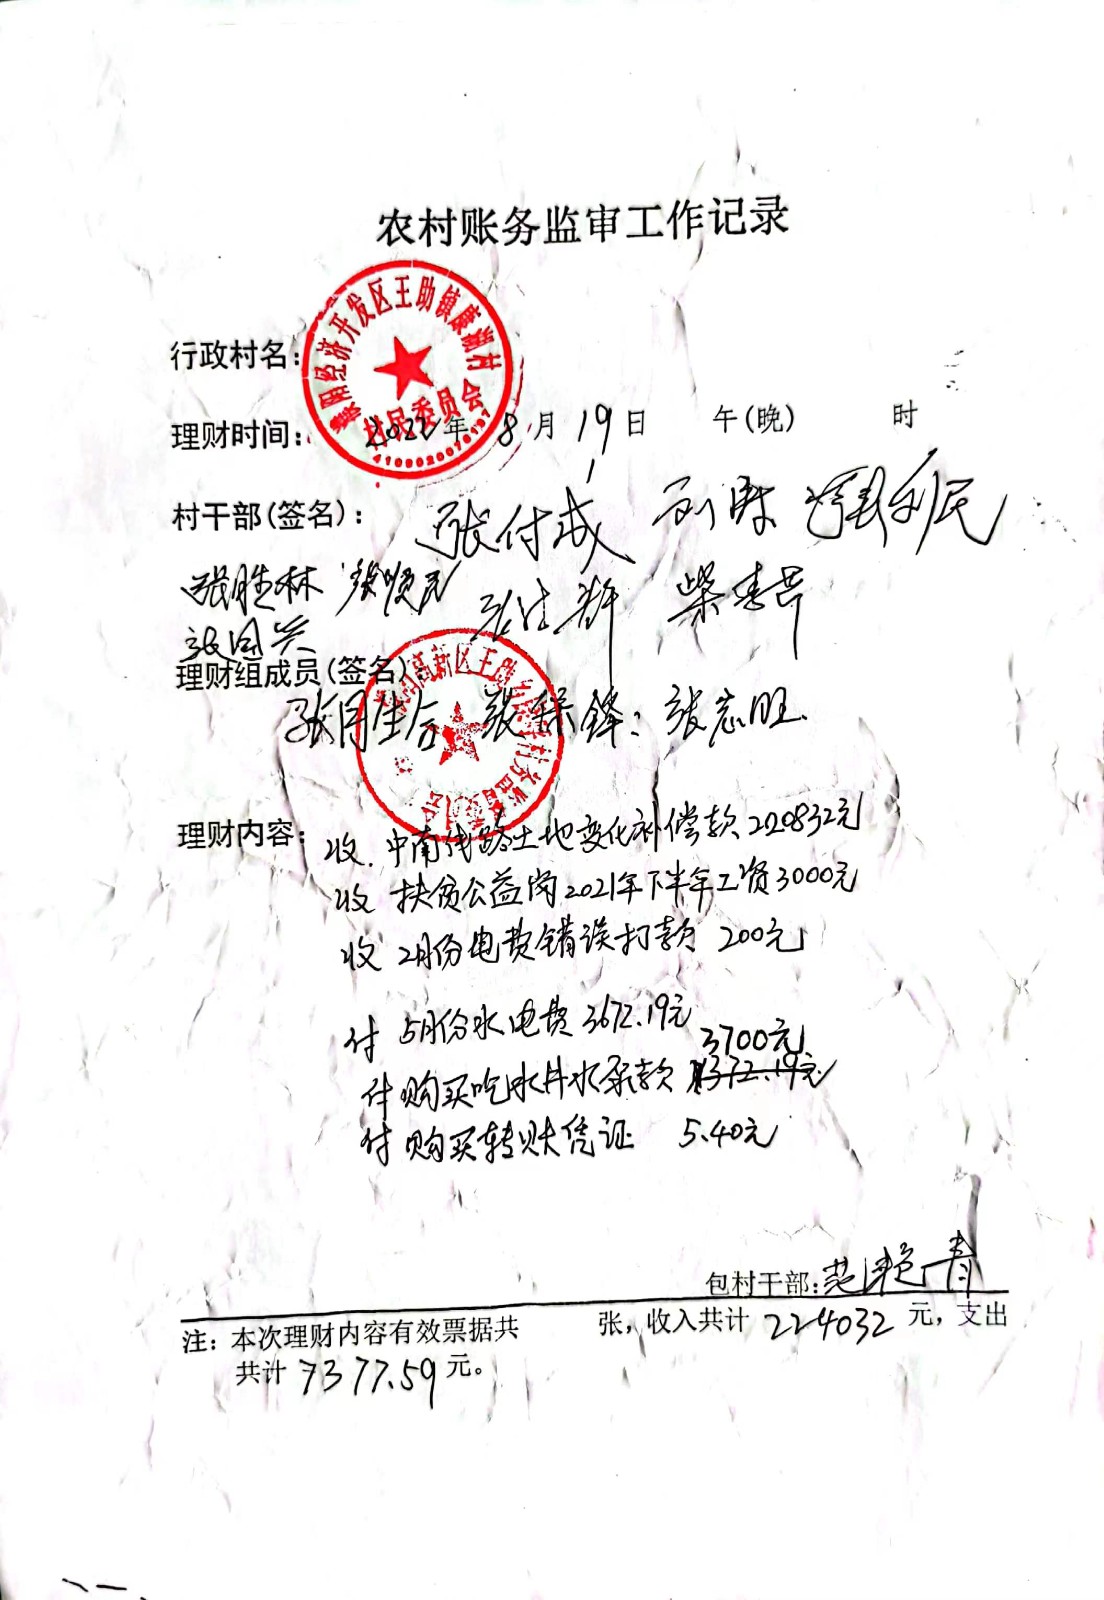 农村账务监审工作记录
濮阳经济开发区王助镇康湖村
村民委员会
行政村名：
理财时间： 2022年 8月19日 午(晚) 时
村干部(签名)： 张付成
张胜林 张顺民 柴青芹
张国兴
理财组成员(签名)
张月生 张保锋： 张志旺.
理财内容：
收. 中南线路土地变化补偿款 220832元
收 扶贫公益岗2021年下半年工资3000元
收 2月份电费错误打款 200元
付 5月份水电费 3672.19元
3700元
付 购买吃水井水泵款
付 购买转账凭证 5.40元
包村干部：范艳青
注：本次理财内容有效票据共 张，收入共计 224032 元，支出
共计 7377.59 元。